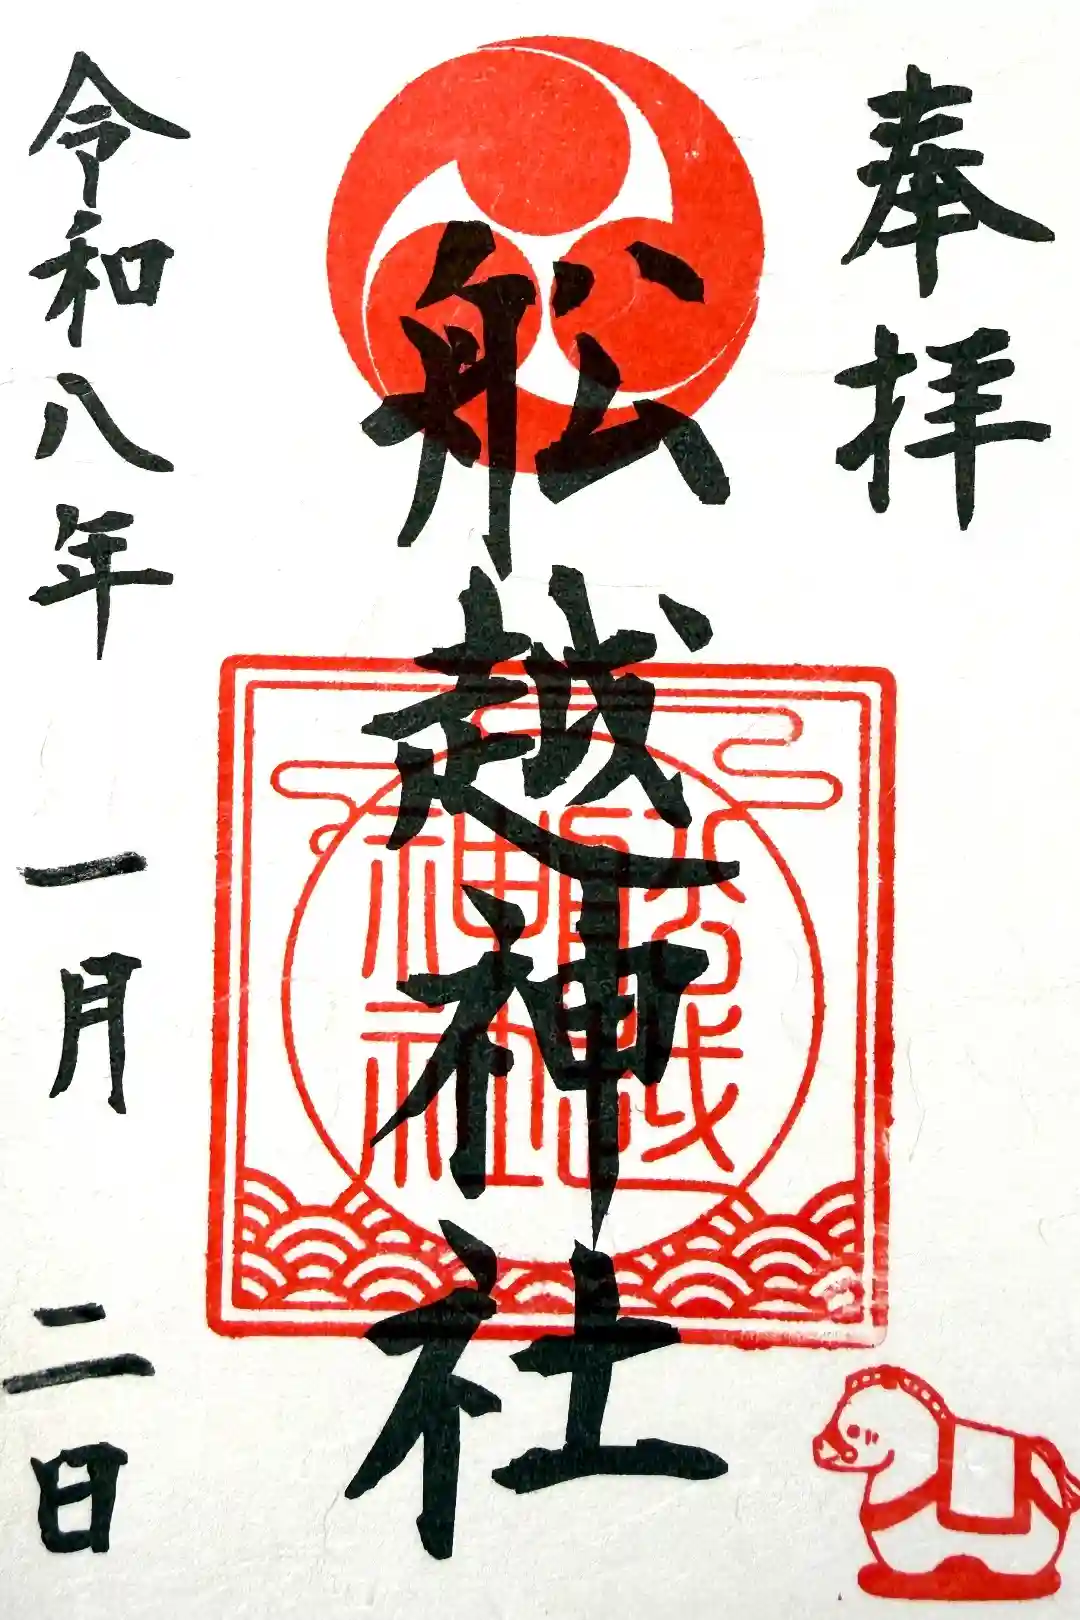 奉拝
舩越神社
舩越神社印
令和八年 一月 二日